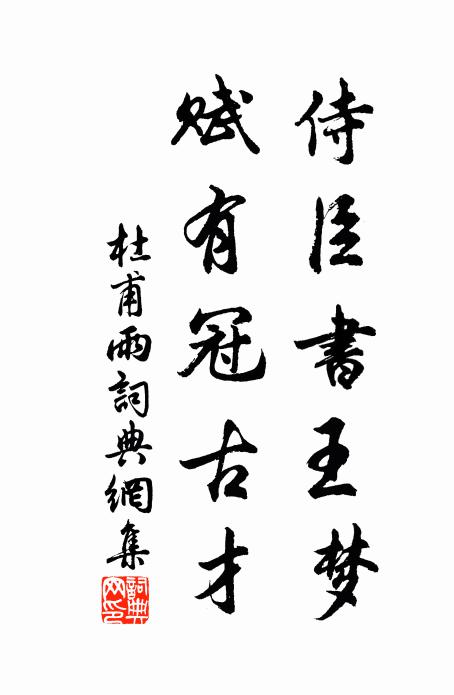 侍臣書王梦
賦有冠古才
杜甫雨詞典網集
詞典网印